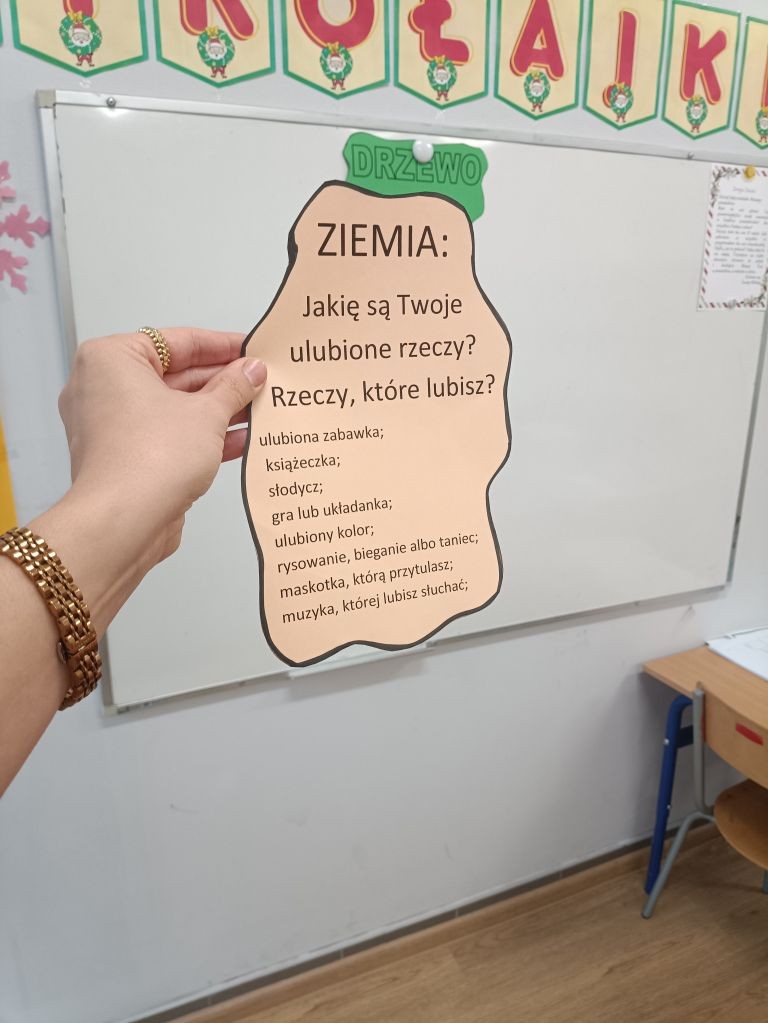 KOŁAJK
DRZEWO
ZIEMIA:
Jakię są Twoje
ulubione rzeczy?
Rzeczy, które lubisz?
ulubiona zabawka;
książeczka;
słodycz;
gra lub układanka;
ulubiony kolor;
rysowanie, bieganie albo taniec;
maskotka, którą przytulasz;
muzyka, której lubisz słuchać;